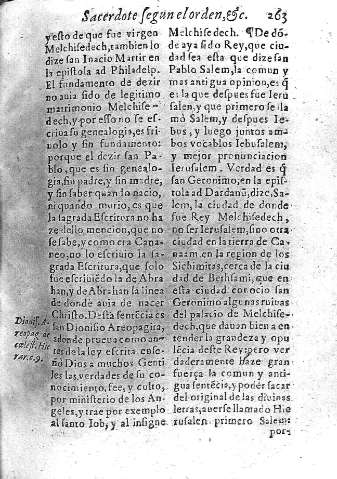 Sacerdote segun el orden, &c. 263
y esto de que fue virgen
Melchisedech, tambien lo
dize san Inacio Martir en
la epistola ad Philadelp.
El fundamento de dezir
no auia sido de legitimo
matrimonio Melchise-
dech, y por esso no se es-
criua su genealogia, es fri-
uolo y sin fundamento:
porque el dezir san Pa-
blo, que es sin genealo-
gia, sin padre, y sin madre,
y sin saber quãdo nacio,
ni quando murio, es que
la sagrada Escritura no ha
ze dello mencion, que no
se sabe, y como era Cana-
neo, no lo escriuio la sa-
grada Escritura, que solo
fue escriuiẽdo la de Abra
han, y de Abrahan la linea
de donde auia de nacer
Christo. Desta sentẽcia es
san Dionisio Areopagita,
adonde prueua como an-
tes de la ley escrita, ense-
ño Dios a muchos Genti
les las verdades de su co-
nocimiento, fee, y culto,
por ministerio de los An-
geles, y trae por exemplo
al santo Iob, y al insigne
Dionis. A-
reopag. de
cælest. Hie
rar. c. 9.
Melchisedech. ¶ De dõ-
de aya sido Rey, que ciu-
dad sea esta que dize san
Pablo Salem, la comun y
mas antigua opinion, es q̃
es la que despues fue Ieru
salen, y que primero se lla
mò Salem, y despues Ie-
bus, y luego juntos am-
bos vocablos Iebusalem,
y mejor pronunciacion
Ierusalem. Verdad es q̃
san Geronimo, en la epis-
tola ad Dardanũ, dize, Sa-
lem, la ciudad de donde
fue Rey Melchisedech,
no ser Ierusalem, sino otra
ciudad en la tierra de Ca-
naam en la region de los
Sichimitas, cerca de la ciu
dad de Bethsami, que en
esta ciudad conocio san
Geronimo algunas ruinas
del palacio de Melchise-
dech, que dauan bien a en-
tender la grandeza y opu
lẽcia deste Rey: pero ver
daderamente haze gran
fuerça la comun y anti-
gua sentẽcia, y poder sacar
del original de las diuinas
letras, auerse llamado Hie
rusalen primero Salem:
por-